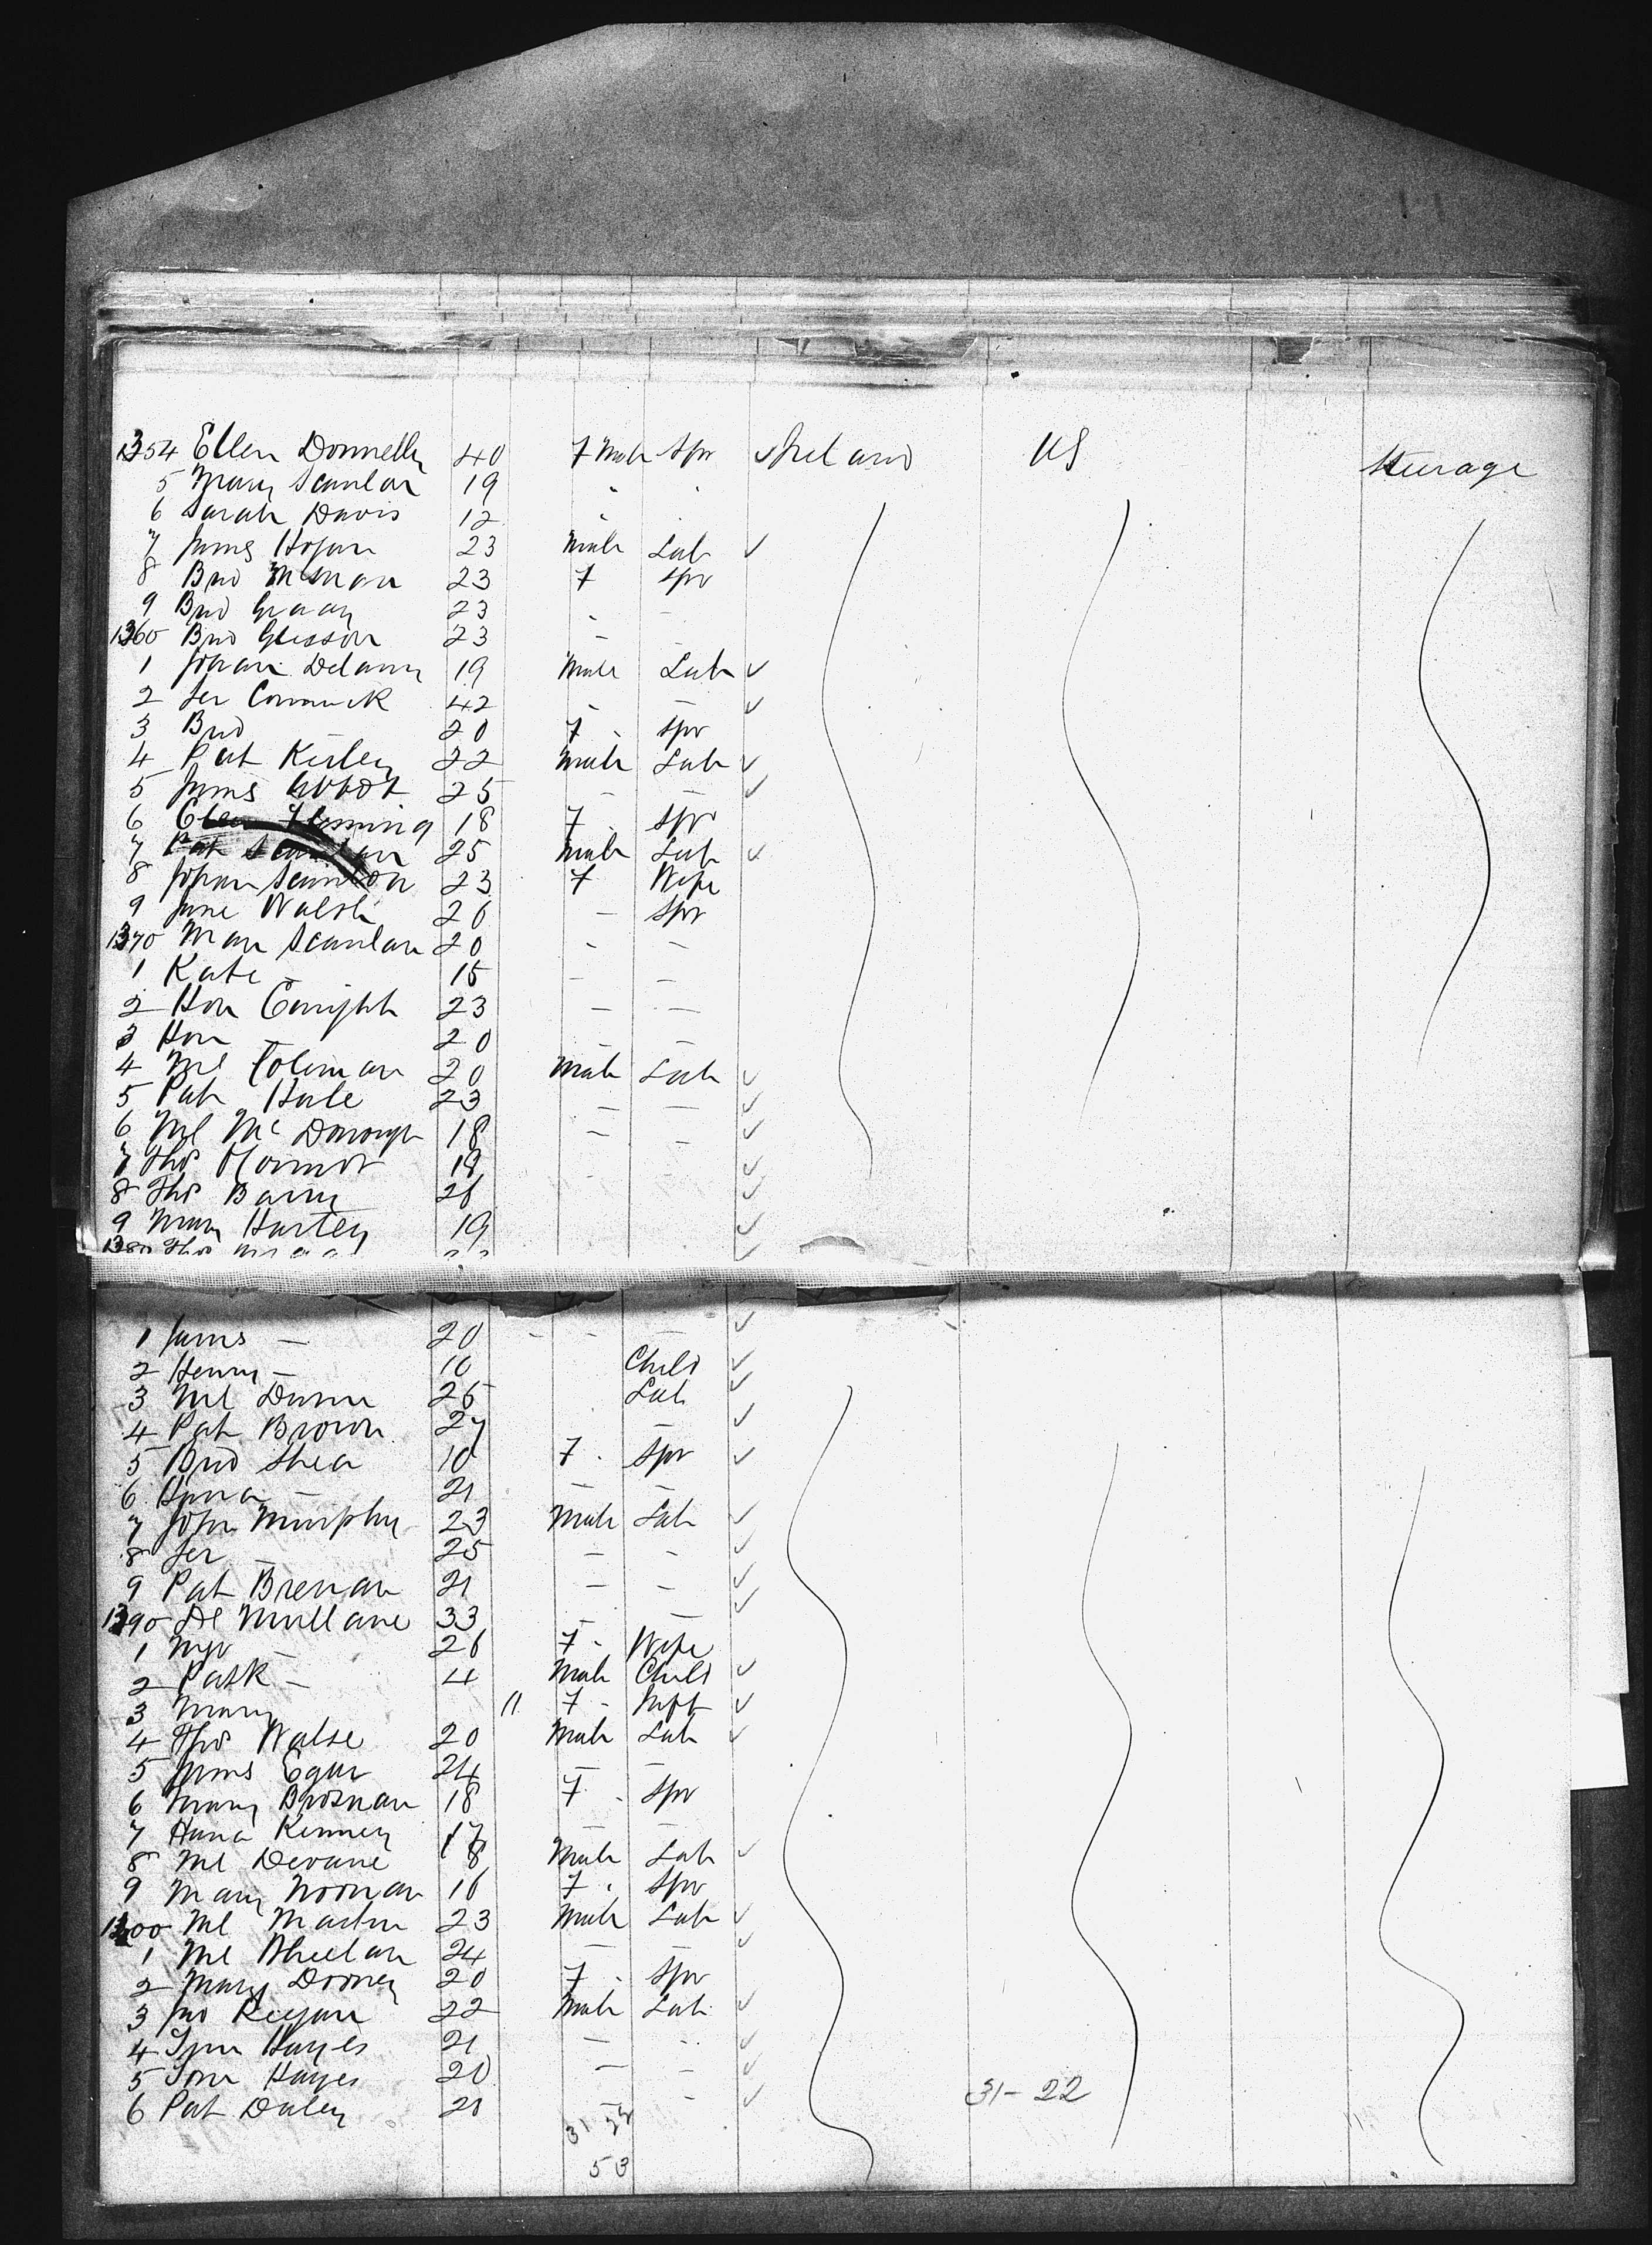 1354 Ellen Donnelly 40 7 Male Spr ✓ Ireland US Steerage
5 Mary Scanlan 19 " "
6 Sarah Davis 12 " "
7 James Hogan 23 Male Lab ✓
8 Brid 23 7 Spr
9 Brid 23 " -
1360 Brid Glisson 23 - -
1 Johan Delany 19 Male Lab ✓
2 Jer 42 - - ✓
3 Brid - 20 7 " Spr
4 Pat Kirley 22 Male Lab ✓
5 James Abbot 25 - - ✓
6 Ellen Fleming 18 7 " Spr
7 Pat Scanlan 25 Male Lab ✓
8 Johan Scanlon 23 7 Wife
9 Jane Walsh 26 - Spr
1370 Mar Scanlan 20 - -
1 Kate - 15 - -
2 Hon Enright 23 - -
3 Hon - 20 - -
4 Ml Coleman 20 Male Lab ✓
5 Pat Hale 23 - - ✓
6 Ml McDonough 18 - - ✓
7 Thos O'Connor 18 - - ✓
8 Thos Barry 26 ✓
9 Mary Hartey 19 ✓
1380 Thos ✓
1 James - 20 - - - ✓
2 Henry - 10 Child ✓
3 Ml Dunne 25 Lab ✓
4 Pat Brown 27 - ✓
5 Brid Shea 10 7 " Spr ✓
6 - 21 - -
7 John Murphy 23 Male Lab ✓
8 Jer - 25 - - ✓
9 Pat Brenan 21 - - ✓
1390 Dl Mullane 33 - - ✓
1 - 26 7 " Wife
2 Patk - 4 Male Child ✓
3 Mary 11 7 - Inft ✓
4 Thos Walse 20 Male Lab ✓
5 James Egan 24 - -
6 Mary Brosnan 18 7 " Spr
7 Hana Kenney 17 - -
8 Ml Devane 18 Male Lab ✓
9 Mary Noonan 16 7 " Spr
1400 Ml Martin 23 Male Lab ✓
1 Ml Wheelan 24 - - ✓
2 Mary Dooney 20 7 " Spr
3 Jno Regan 22 Male Lab ✓
4 Hayes 21 - - ✓
5 Tom Hayes 20 - - ✓
6 Pat Daley 20 - - ✓ 31-22
31 22
53